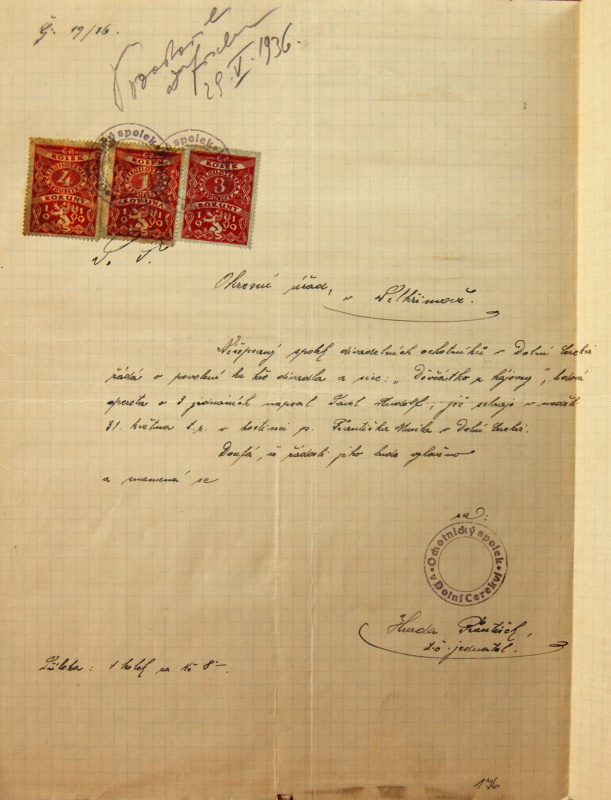 Č. 19/36.
29. V. 1936.
Ochotnický spolek
spolek
KOLEK KOLEK KOLEK
4 1 3
KORUNY KORUNA KORUNY
19 19 19
Okresní úřad, v Pelhřimově.
Nížepsaný spolek divadelních ochotníků v Dolní Cerekvi
žádá o povolení ku hře divadla a sice: „Děvčátko z hájovny", lidová
opereta o 3 jednáních napsal Karel Rudolf, jež sehraje v neděli
31. května t.r. v hostinci p. Františka v Dolní Cerekvi.
Doufá, že žádosti jeho bude vyhověno
a znamená se
za:
Ochotnický spolek
v Dolní Cerekvi
František,
t.č. jednatel.
Příloha: 1 kolek za Kč 8'-
176